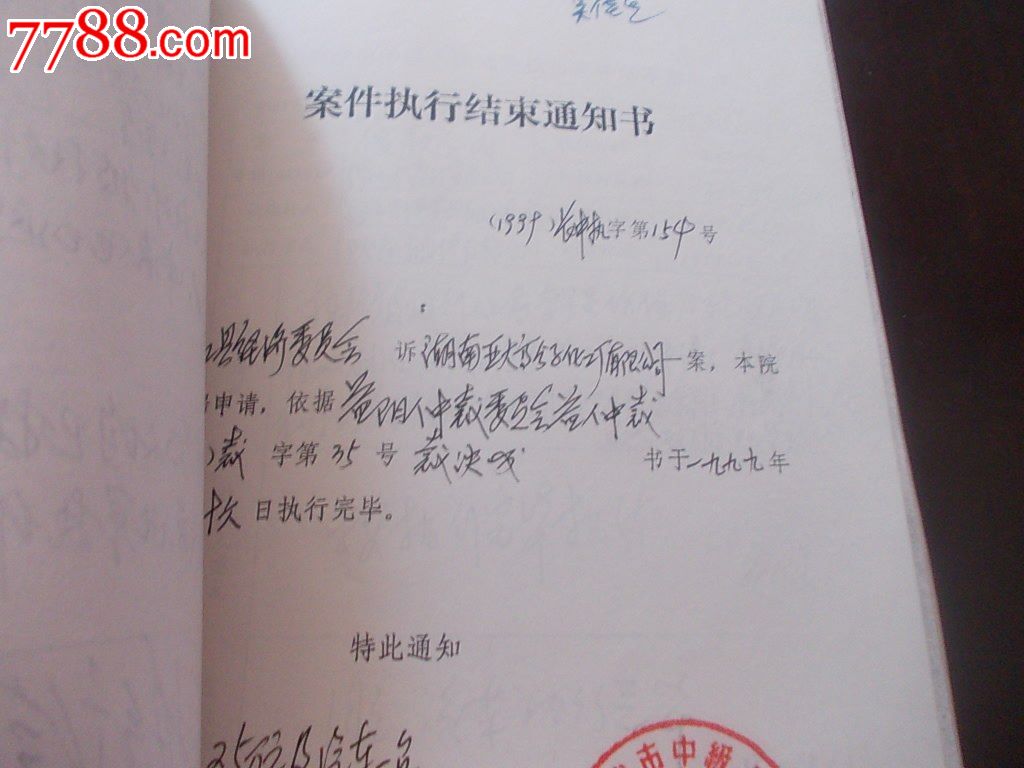 7788.com
案件执行结束通知书
(1999)长中执字第154号
:
县经济委员会 诉湖南亚大高分子化工有限公司一案，本院
申请，依据益阳仲裁委员会益仲裁
)裁 字第 35 号 裁决 书于一九九九年
日执行完毕。
特此通知
市中级